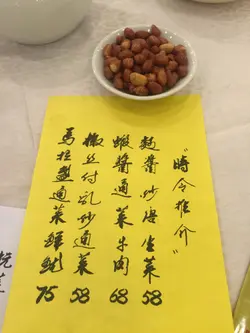 “時令推介”
麵醬炒生菜 58
蝦醬通菜牛肉 68
椒丝付乱炒通菜 58
馬拉盞通菜鮮魷 75